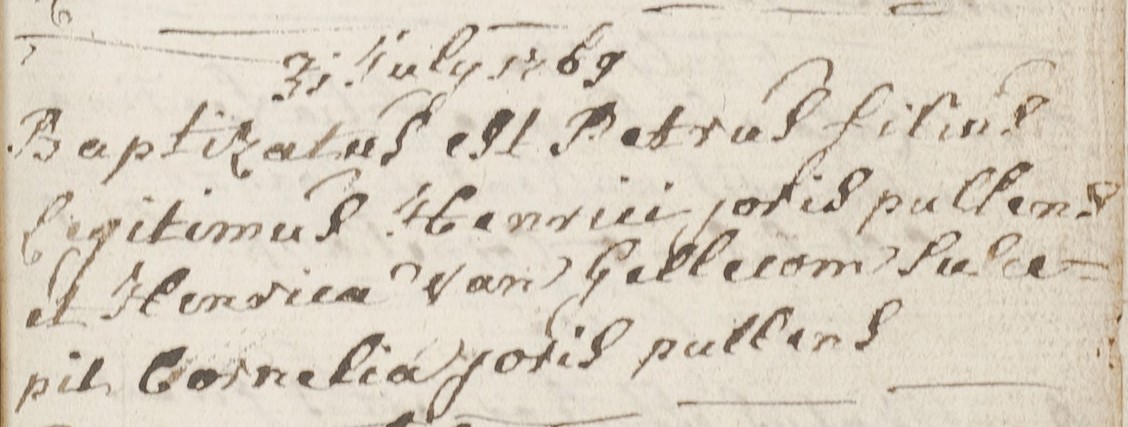 31 July 1769
Baptizatus est Petrus filius
legitimus Henrici joris pullens
et Henrica van Gellecom Susce-
pit Cornelia joris pullens